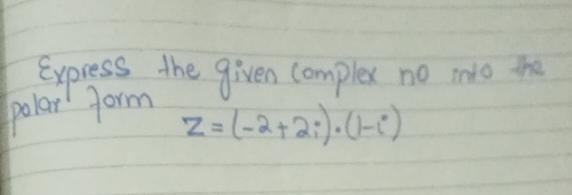 Express the given complex no into the
polar form
z = (-2+2i)·(1-i)